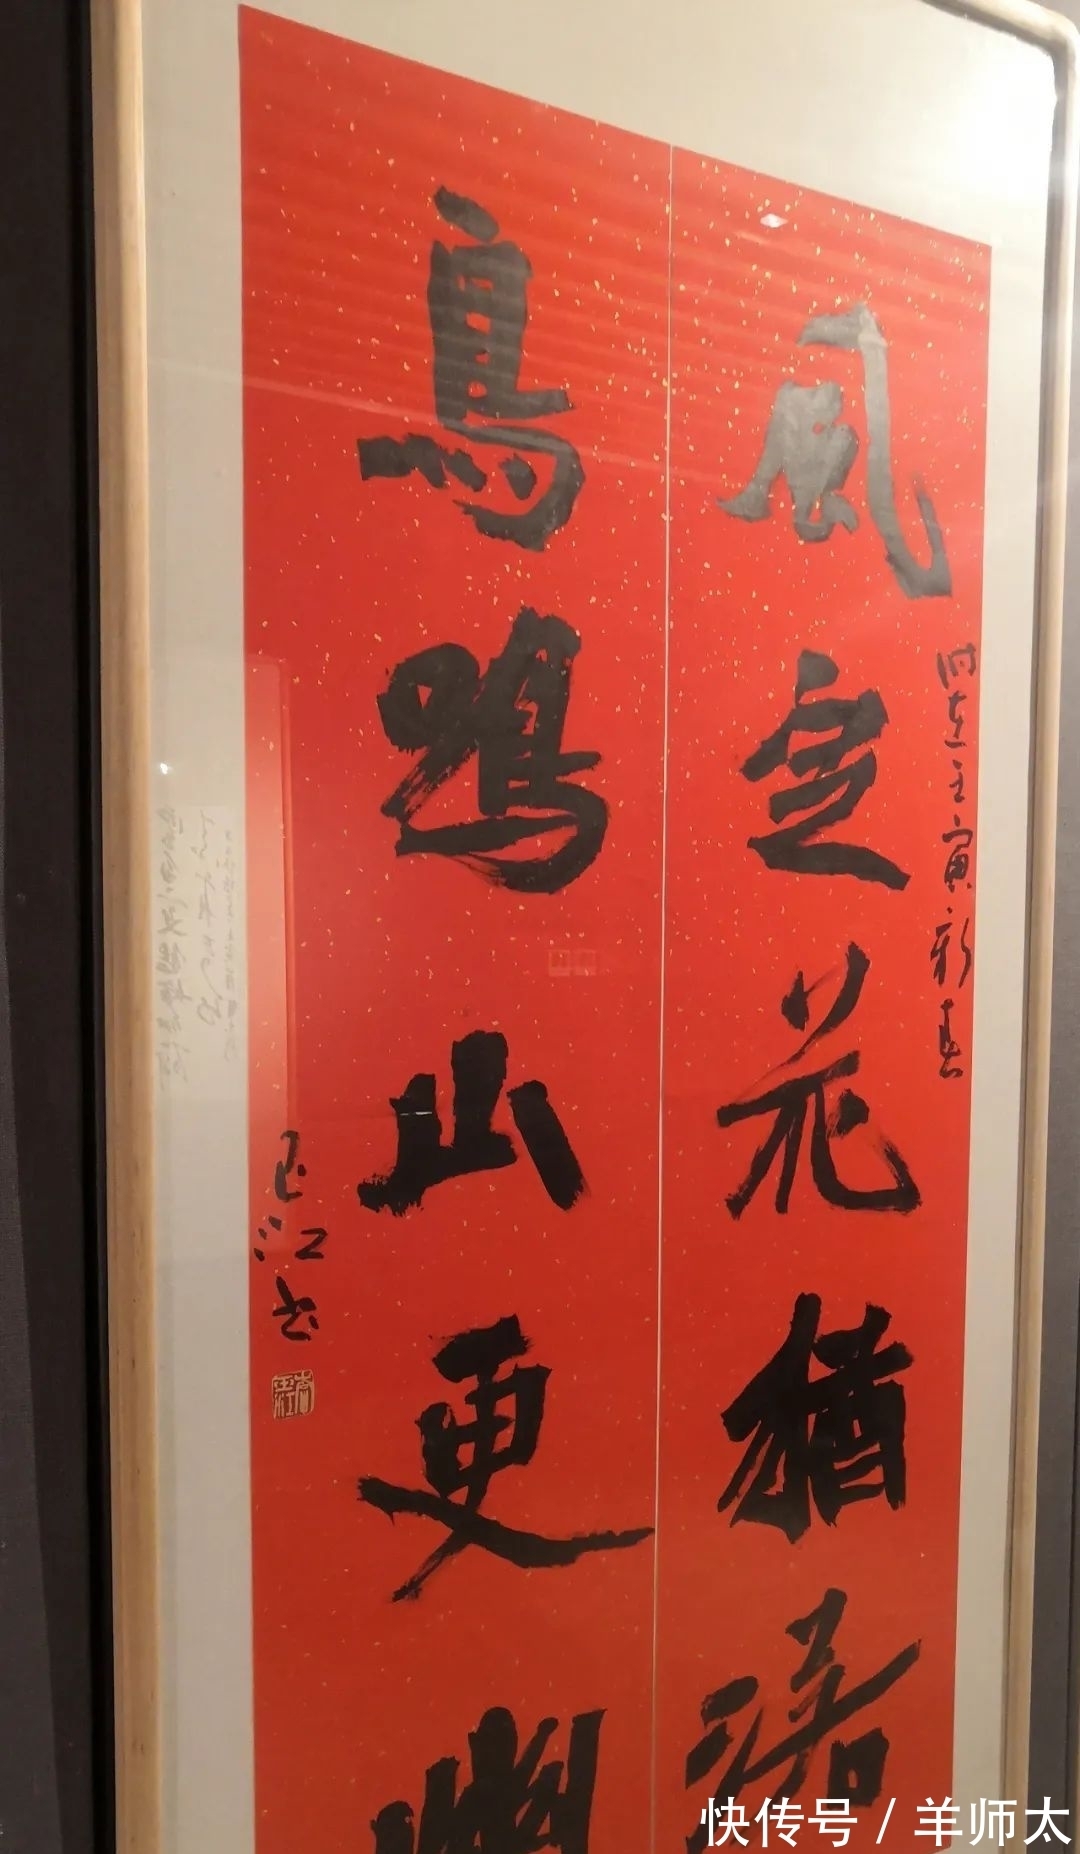 風定花猶落
时在壬寅新春
鳥鳴山更幽
玉江书
快传号 / 羊师太